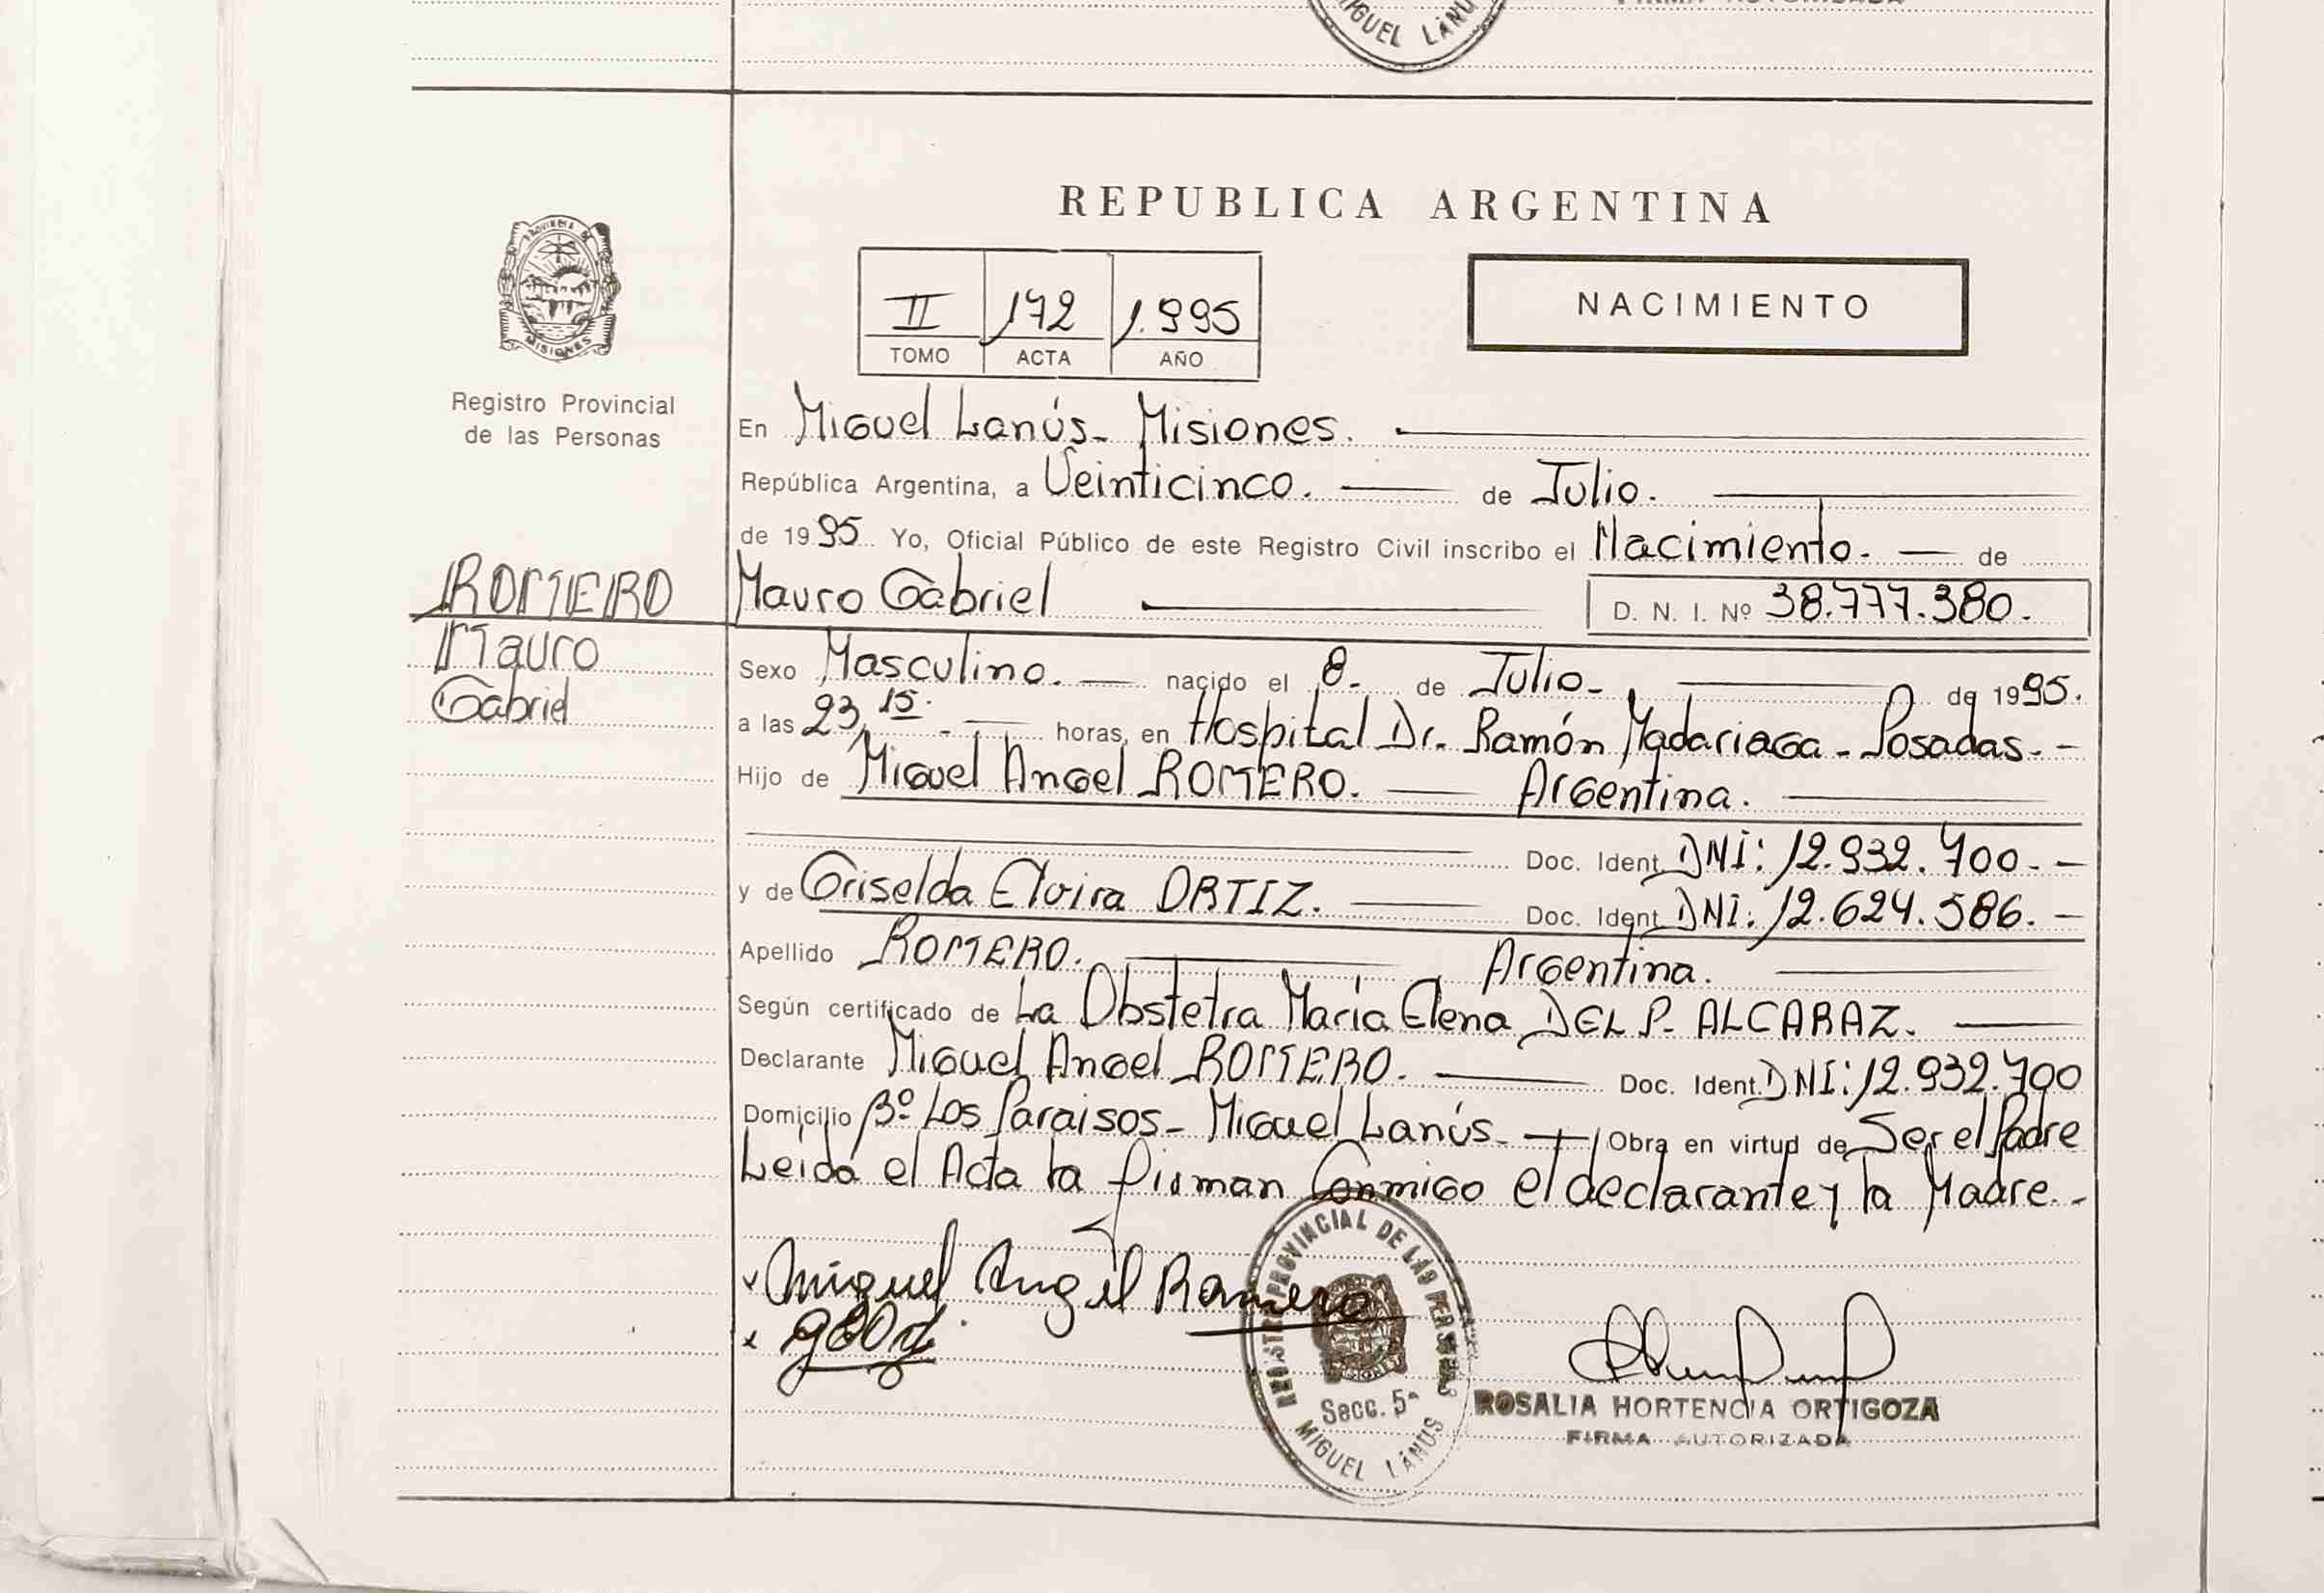 MIGUEL LANUS
FIRMA AUTORIZADA
REPUBLICA ARGENTINA
PROVINCIA DE
MISIONES
II 172 1.995
TOMO ACTA AÑO
NACIMIENTO
Registro Provincial
de las Personas
ROMERO
Mauro
Gabriel
En Miguel Lanús - Misiones.
República Argentina, a Veinticinco. de Julio.
de 1995 Yo, Oficial Público de este Registro Civil inscribo el Nacimiento. de
Mauro Gabriel D. N. I. Nº 38.777.380.
Sexo Masculino. nacido el 8. de Julio - de 1995.
a las 23,15. horas, en Hospital Dr. Ramón Madariaga - Posadas. -
Hijo de Miguel Angel ROMERO. Argentina.
Doc. Ident. DNI: 12.932.700. -
y de Griselda Elvira ORTIZ. Doc. Ident. DNI: 12.624.586. -
Apellido ROMERO. Argentina.
Según certificado de La Obstetra María Elena DEL P. ALCARAZ.
Declarante Miguel Angel ROMERO. Doc. Ident. DNI: 12.932.700
Domicilio Bº Los Paraisos - Miguel Lanús - Obra en virtud de Ser el Padre
Leida el Acta la firman Conmigo el declarante y la Madre. -
Miguel Angel Romero
REGISTRO PROVINCIAL DE LAS PERSONAS
Secc. 5ª
MIGUEL LANUS
ROSALIA HORTENCIA ORTIGOZA
FIRMA AUTORIZADA